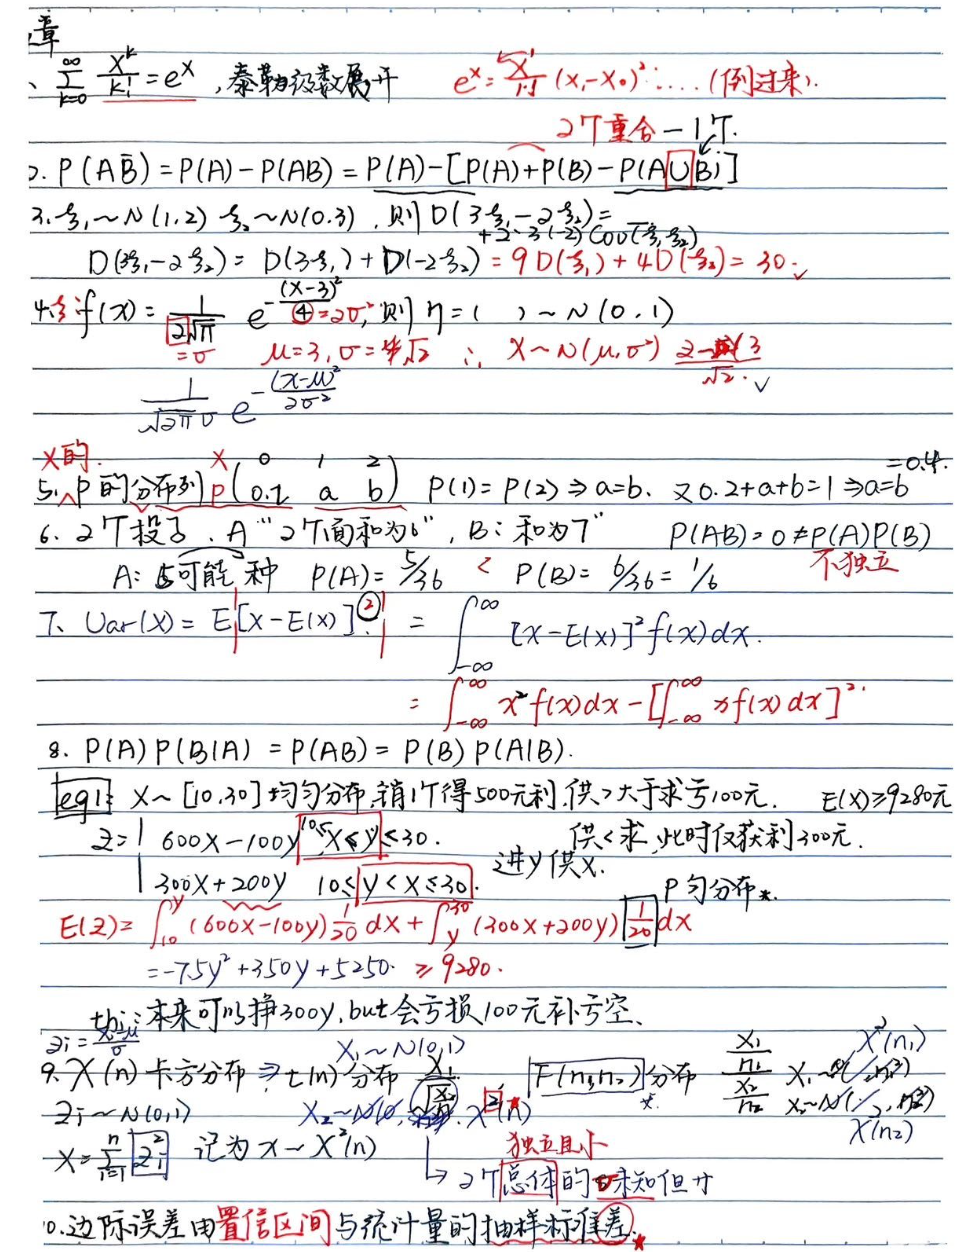 章
、∑_{k=0}^{∞} x^k/k! = e^x ,泰勒级数展开 e^x = x^1/1! (x-x₀)².... (倒过来).
2个重合-1个.
2. P(AB̄) = P(A)-P(AB) = P(A)-[P(A)+P(B)-P(A∪B)]
3. ξ₁~N(1,2) ξ₂~N(0.3), 则D(3ξ₁-2ξ₂)=
+2·3·(-2)Cov(ξ₁,ξ₂)
D(3ξ₁-2ξ₂) = D(3ξ₁)+D(-2ξ₂) = 9D(ξ₁)+4D(ξ₂) = 30.✓
4. ξ f(x) = 1/(2√π) e^{-(x-3)²/4} =2σ², 则 η=( )~N(0,1)
=σ μ=3,σ=√2 ∴ X~N(μ,σ²) 3/√2.✓
1/(√2π σ) e^{-(x-μ)²/2σ²}
X的.
5. P的分布列 X P( 0 1 2 / 0.2 a b ) P(1)=P(2)⇒a=b. 又0.2+a+b=1⇒a=b =0.4.
6. 2个投子. A"2个面和为6", B: 和为7" P(AB)=0≠P(A)P(B)
A: 5可能种 P(A)=5/36 P(B)=6/36=1/6 不独立
7、Var(X) = E[X-E(X)]² = ∫_{-∞}^{∞} [x-E(x)]² f(x)dx.
= ∫_{-∞}^{∞} x² f(x)dx - [∫_{-∞}^{∞} xf(x)dx]².
8. P(A)P(B|A) = P(AB) = P(B)P(A|B).
eg1: X~[10,30]均匀分布,销1个得500元利.供>大于求亏100元. E(X)≥9280元
Z= 600X-100y 10≤X≤y≤30. 供<求,此时仅获利300元.
300X+200y 10≤y<X≤30. 进y供X.
P匀分布*.
E(Z)= ∫_{10}^{y} (600X-100y) 1/20 dx + ∫_{y}^{30} (300x+200y) 1/20 dx
= -7.5y²+350y+5250. ≥9280.
thi:本来可以挣300y,but会亏损100元补亏空、
Zi = (x-μ)/σ X₁~N(0,1) X₁/n₁ X²(n₁)
9. X(n)卡方分布⇒t(n)分布 X₁/√(X₂/n) F(n₁,n₂)分布 X₂/n₂
Zi~N(0,1) X²(n)
X=∑_{i=1}^{n} Zi² 记为x~X²(n) 独立且小 X(n₂)
→2个总体的σ未知但
10.边际误差由置信区间与统计量的抽样标准差.★